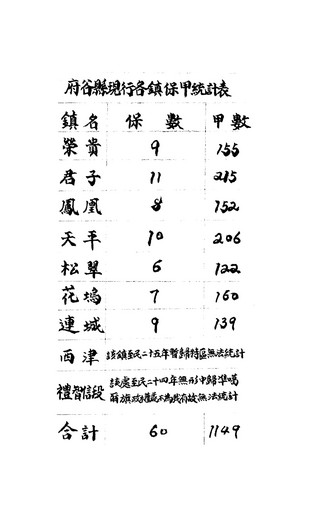 府谷縣現行各鎮保甲統計表
鎮名 保數 甲數
榮貴 9 155
君子 11 215
鳳凰 8 152
天平 10 206
松翠 6 122
花塢 7 160
連城 9 139
西津 該鎮至民二十五年暫歸特區無法統計
禮智信段 該處至民二十四年無形中歸準噶
爾旗政權區不為我有故無法統計
合計 60 1149